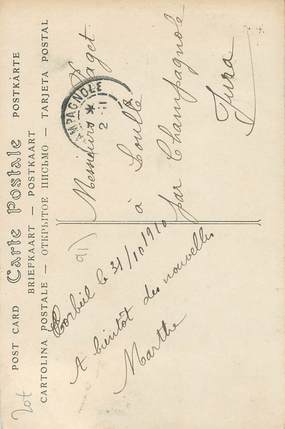 POST CARD Carte Postale POSTKÁRTE
BRIEFKAART — POSTKAART
CARTOLINA POSTALE — ОТКРЫТОЕ ПИСЬМО — TARJETA POSTAL
91)
Corbeil le 31/10 1910
A bientôt des nouvelles
Marthe
Messieurs Paget
à Loulle
par Champagnole
Jura
CHAMPAGNOLE
2 - 11